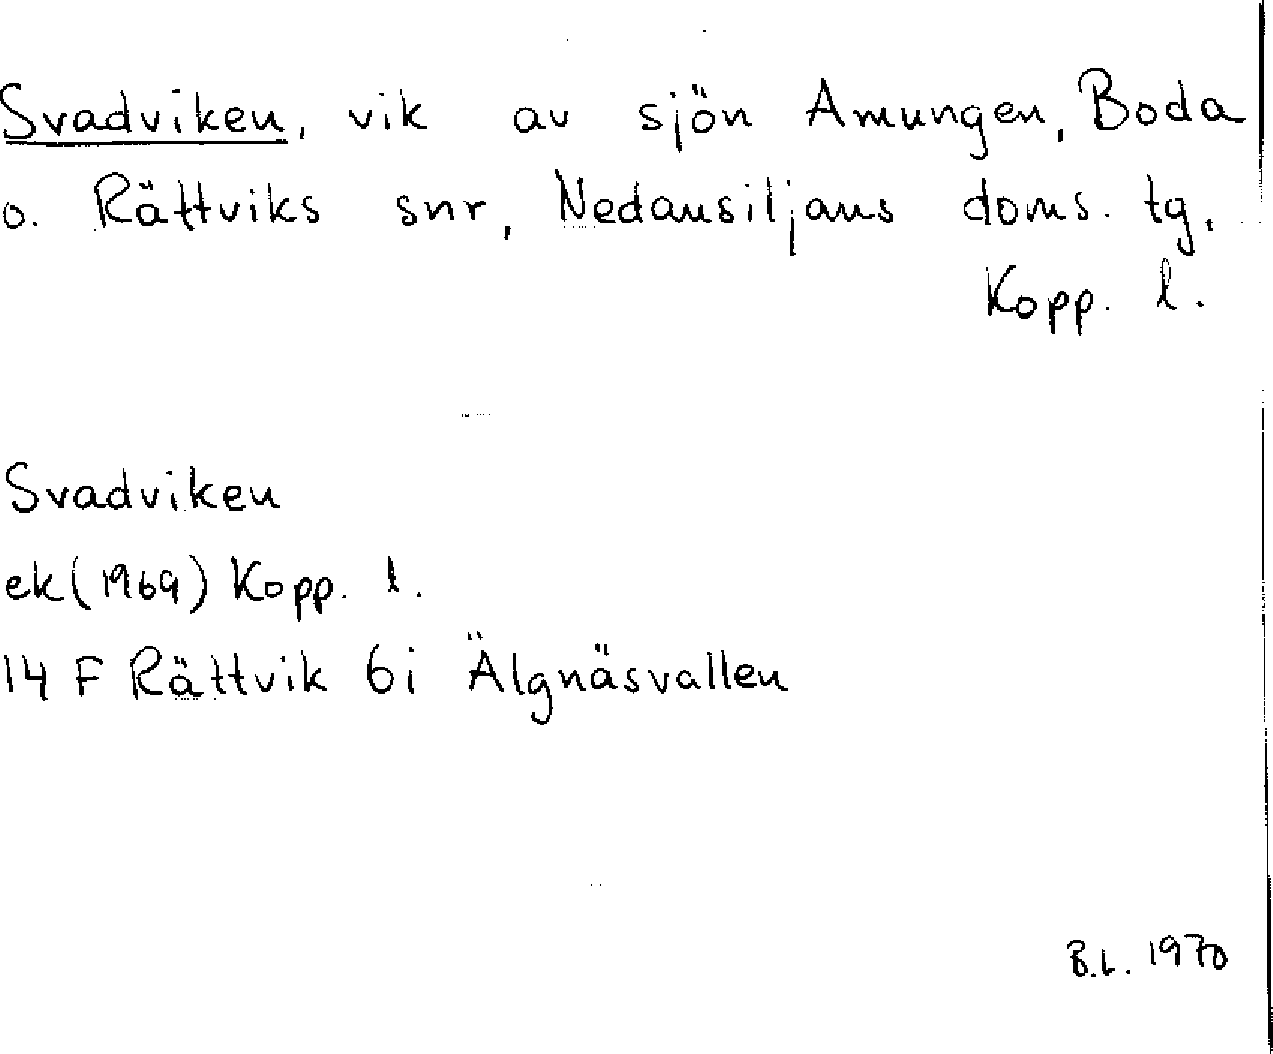 Svadviken, vik av sjön Amungen, Boda
o. Rättviks snr, Nedansiljans doms. tg,
Kopp. l.
Svadviken
ek (1969) Kopp. l.
14 F Rättvik 6i Älgnäsvallen
B.L. 1970